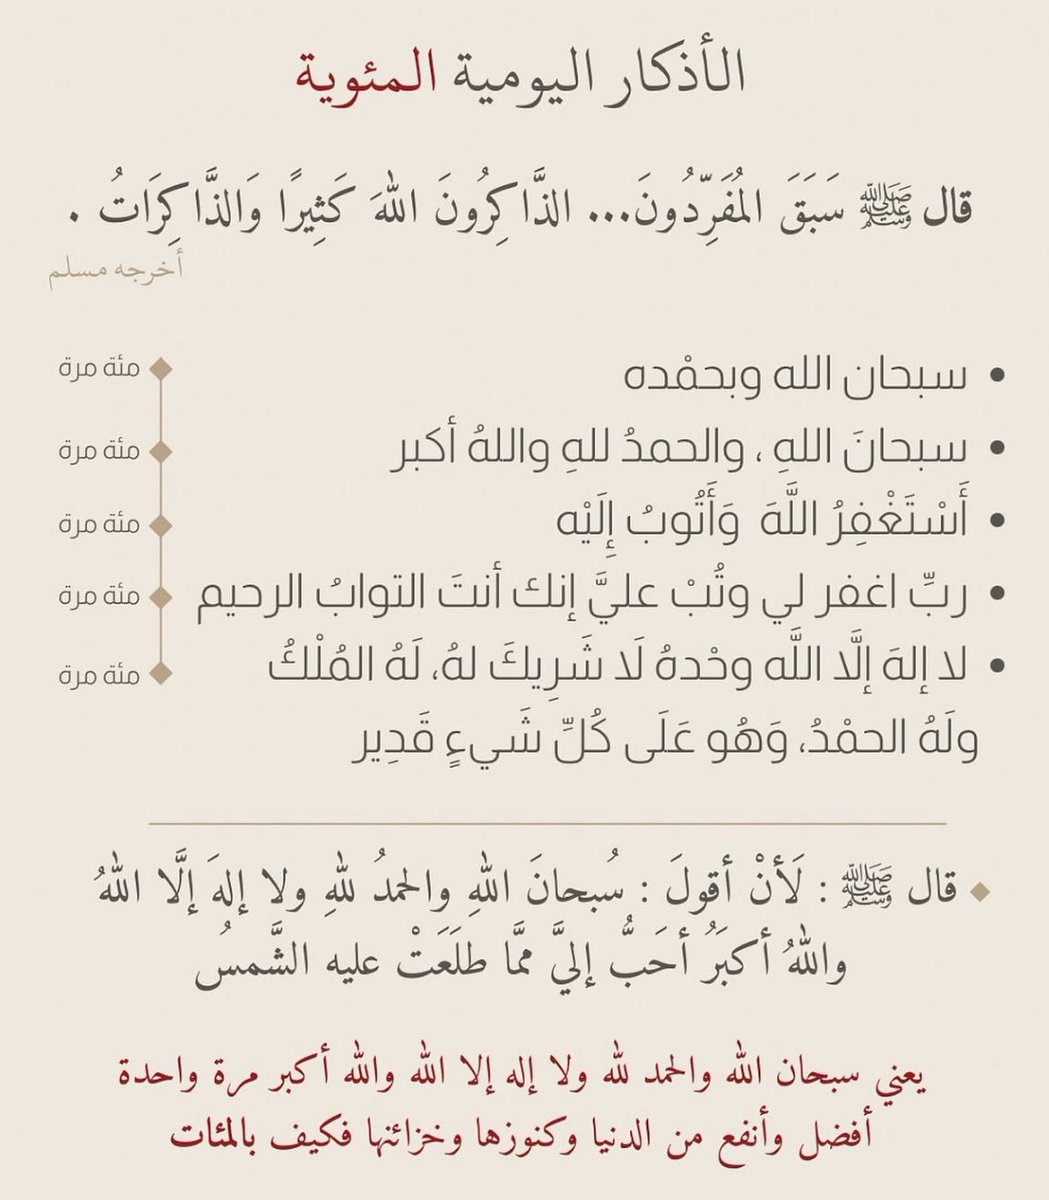 الأذكار اليومية المئوية
قال ﷺ سَبَقَ المُفَرِّدُونَ... الذَّاكِرُونَ اللهَ كَثِيرًا وَالذَّاكِرَاتُ .
أخرجه مسلم
• سبحان الله وبحمْده مئة مرة
• سبحانَ اللهِ ، والحمدُ للهِ واللهُ أكبر مئة مرة
• أَسْتَغْفِرُ اللَّهَ وَأَتُوبُ إِلَيْه مئة مرة
• ربِّ اغفر لي وتُبْ عليَّ إنك أنتَ التوابُ الرحيم مئة مرة
• لا إلهَ إلَّا اللَّه وحْدهُ لَا شَرِيكَ لهُ، لَهُ المُلْكُ مئة مرة
ولَهُ الحمْدُ، وَهُو عَلَى كُلِّ شَيءٍ قَدِير
قال ﷺ : لَأنْ أقولَ : سُبحانَ اللهِ والحمدُ للهِ ولا إلهَ إلَّا اللهُ
واللهُ أكبَرُ أحَبُّ إليَّ ممَّا طلَعَتْ عليه الشَّمسُ
يعني سبحان الله والحمد لله ولا إله إلا الله والله أكبر مرة واحدة
أفضل وأنفع من الدنيا وكنوزها وخزائنها فكيف بالمئات